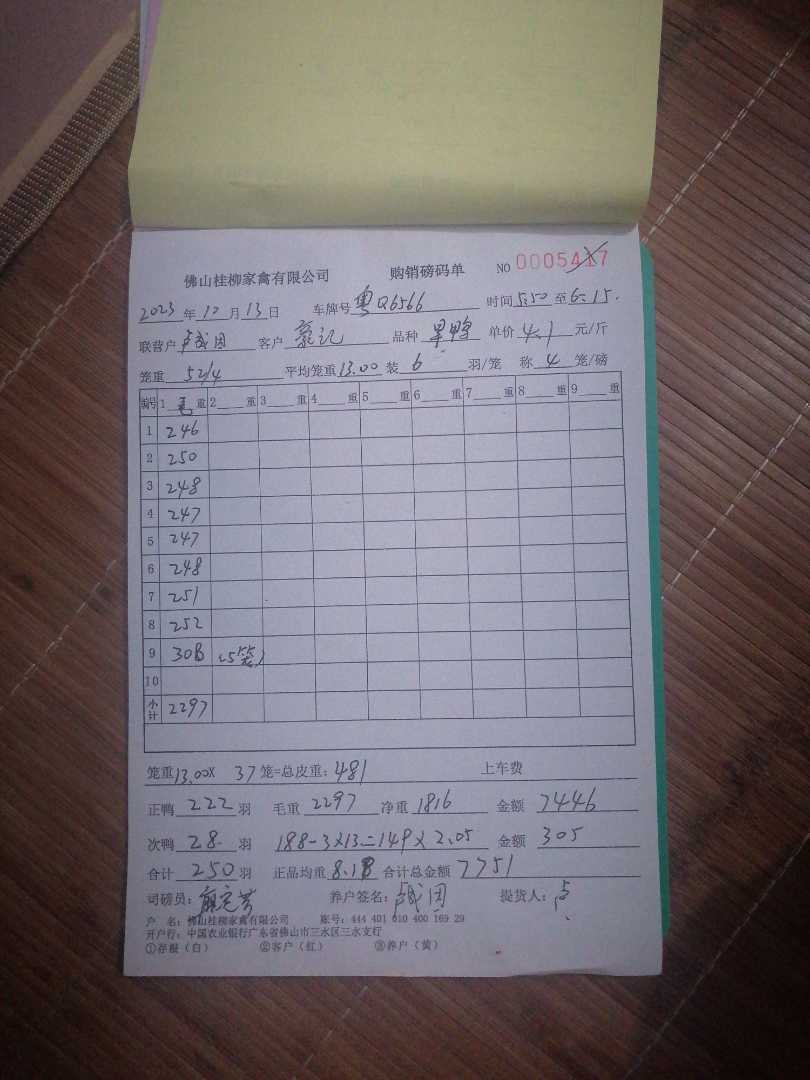 佛山桂柳家禽有限公司 购销磅码单 NO 0005417
2023年12月13日 车牌号 粤Q6566 时间 5:50 至 6:15.
联营户 客户 品种 单价 4.1 元/斤
笼重 52/4 平均笼重 13.00 装 6 羽/笼 称 4 笼/磅
编号 1 毛 重 2 重 3 重 4 重 5 重 6 重 7 重 8 重 9 重
1 246
2 250
3 248
4 247
5 247
6 248
7 251
8 252
9 308 (5笼)
10
小计 2297
笼重 13.00 X 37 笼=总皮重: 481 上车费
正鸭 222 羽 毛重 2297 净重 1816 金额 7446
次鸭 28 羽 188-3×13=149×2.05 金额 305
合计 250 羽 正品均重 8.18 合计总金额 7751
司磅员: 养户签名: 提货人:
户 名: 佛山桂柳家禽有限公司 账号: 444 401 010 400 169 29
开户行: 中国农业银行广东省佛山市三水区三水支行
①存根(白) ②客户(红) ③养户(黄)